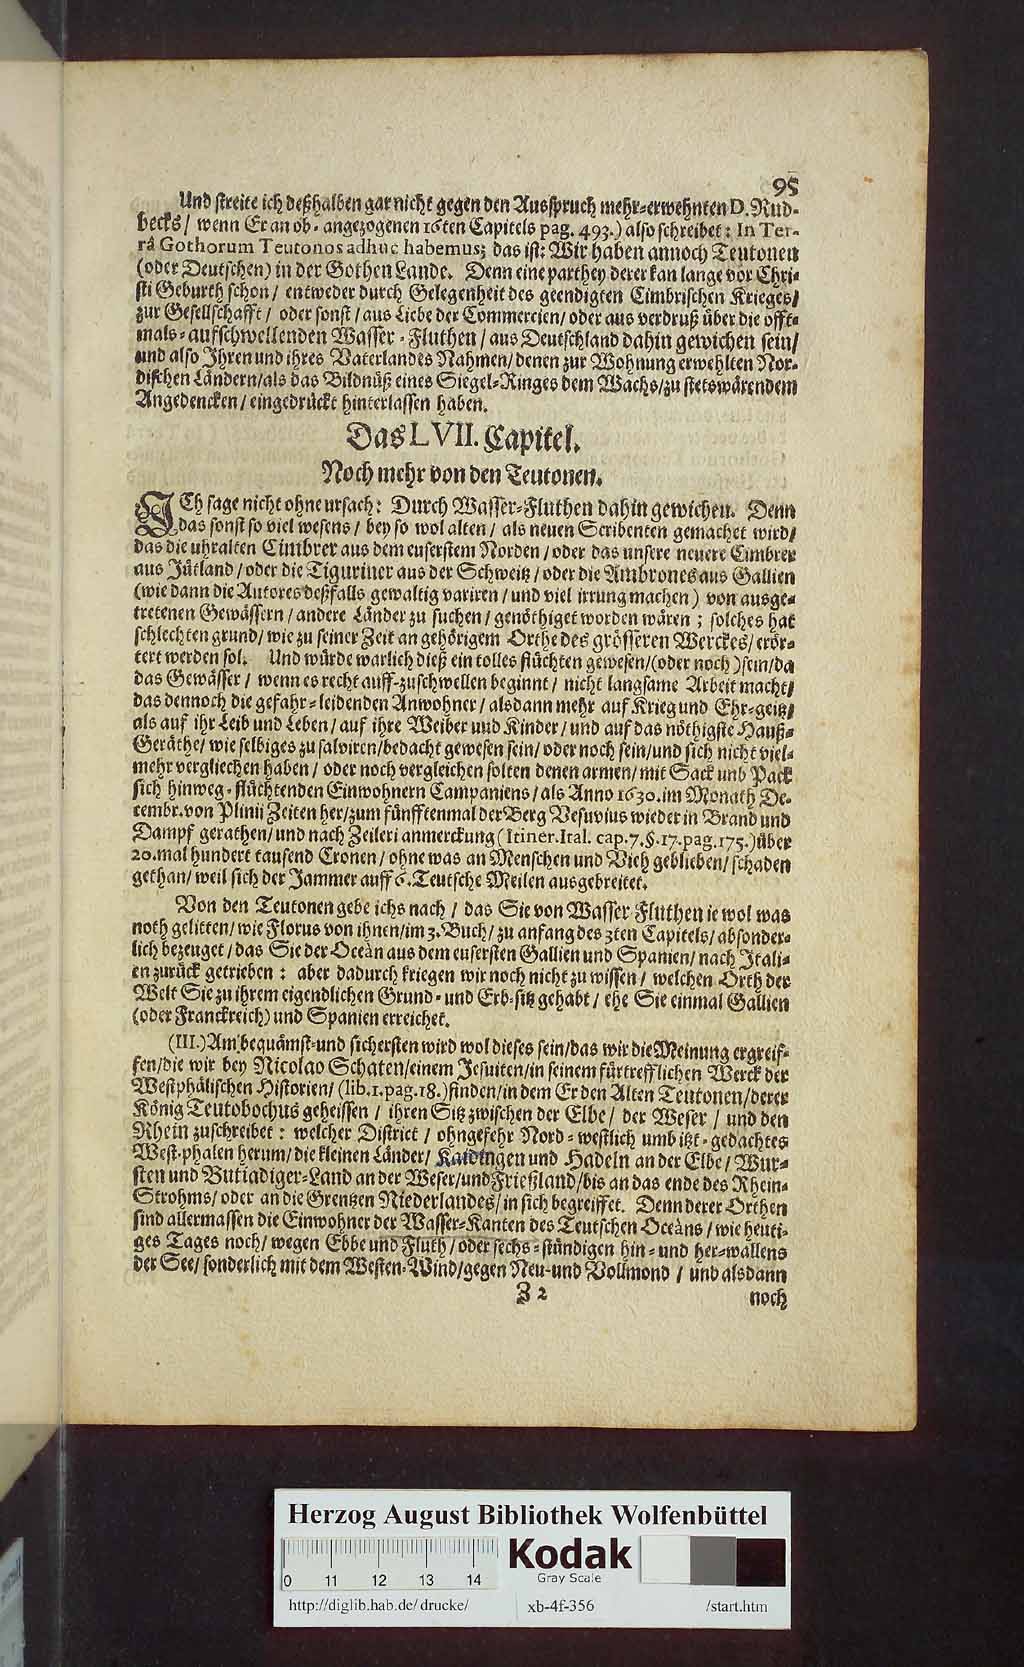 95
Und streite ich deßhalben gar nicht gegen den Ausspruch mehr-erwehnten D. Rud-
becks / wenn Er an ob-angezogenen 16ten Capitels pag. 493.) also schreibet: In Ter-
râ Gothorum Teutonos adhuc habemus; das ist: Wir haben annoch Teutonen
(oder Deutschen) in der Gothen Lande. Denn eine parthey derer kan lange vor Chri-
sti Geburth schon / entweder durch Gelegenheit des geendigten Cimbrischen Krieges /
zur Gesellschafft / oder sonst / aus Liebe der Commercien / oder aus verdruß über die offt-
mals-aufschwellenden Wasser-Fluthen / aus Deutschland dahin gewichen sein /
und also Ihren und ihres Vaterlandes Nahmen / denen zur Wohnung erwehlten Nor-
dischen Ländern / als das Bildnüß eines Siegel-Ringes dem Wachs / zu stetswärendem
Angedencken / eingedrückt hinterlassen haben.
Das LVII. Capitel.
Noch mehr von den Teutonen.
ICh sage nicht ohne ursach: Durch Wasser-Fluthen dahin gewichen. Denn
das sonst so viel wesens / bey so wol alten / als neuen Scribenten gemachet wird /
das die uhralten Cimbrer aus dem euserstem Norden / oder das unsere neuere Cimbrer
aus Jütland / oder die Tiguriner aus der Schweitz / oder die Ambrones aus Gallien
(wie dann die Autores deßfalls gewaltig variren / und viel irrung machen) von ausge-
tretenen Gewässern / andere Länder zu suchen / genöthiget worden wären; solches hat
schlechten grund / wie zu seiner Zeit an gehörigem Orthe des grösseren Werckes / erör-
tert werden sol. Und würde warlich dieß ein tolles flüchten gewesen / (oder noch) sein / da
das Gewässer / wenn es recht auff-zuschwellen beginnt / nicht langsame Arbeit macht /
das dennoch die gefahr-leidenden Anwohner / alsdann mehr auf Krieg und Ehr-geitz /
als auf ihr Leib und Leben / auf ihre Weiber und Kinder / und auf das nöthigste Hauß-
Geräthe / wie selbiges zu salviren / bedacht gewesen sein / oder noch sein / und sich nicht viel-
mehr vergliechen haben / oder noch vergleichen solten denen armen / mit Sack unb Pack
sich hinweg-flüchtenden Einwohnern Campaniens / als Anno 1630. im Monath De-
cembr. von Plinii Zeiten her / zum fünfftenmal der Berg Vesuvius wieder in Brand und
Dampf gerathen / und nach Zeileri anmerckung (Itiner. Ital. cap. 7. §. 17. pag. 175.) über
20. mal hundert tausend Cronen / ohne was an Menschen und Vieh geblieben / schaden
gethan / weil sich der Jammer auff 6. Teutsche Meilen ausgebreitet.
Von den Teutonen gebe ichs nach / das Sie von Wasser Fluthen ie wol was
noth gelitten / wie Florus von ihnen / im 3. Buch / zu anfang des 3ten Capitels / absonder-
lich bezeuget / das Sie der Oceàn aus dem eusersten Gallien und Spanien / nach Itali-
en zurück getrieben: aber dadurch kriegen wir noch nicht zu wissen / welchen Orth der
Welt Sie zu ihrem eigendlichen Grund- und Erb-sitz gehabt / ehe Sie einmal Gallien
(oder Franckreich) und Spanien erreichet.
(III.) Am bequämst- und sichersten wird wol dieses sein / das wir die Meinung ergreif-
fen / die wir bey Nicolao Schaten / einem Jesuiten / in seinem fürtrefflichen Werck der
Westphälischen Historien / (lib. 1. pag. 18.) finden / in dem Er den Alten Teutonen / derer
König Teutobochus geheissen / ihren Sitz zwischen der Elbe / der Weser / und den
Rhein zuschreibet: welcher District / ohngefehr Nord-westlich umb itzt-gedachtes
West-phalen herum / die kleinen Länder / Kaidingen und Hadeln an der Elbe / Wur-
sten und Butiadiger-Land an der Weser / und Frießland / bis an das ende des Rhein-
Strohms / oder an die Grentzen Niederlandes / in sich begreiffet. Denn derer Orthen
sind allermassen die Einwohner der Wasser-Kanten des Teutschen Oceàns / wie heuti-
ges Tages noch / wegen Ebbe und Fluth / oder sechs-stündigen hin- und her-wallens
der See / sonderlich mit dem Westen-Wind / gegen Neu- und Vollmond / und alsdann
Z 2
noch
Herzog August Bibliothek Wolfenbüttel
0 11 12 13 14
Kodak
Gray Scale
http://diglib.hab.de/drucke/ xb-4f-356 /start.htm